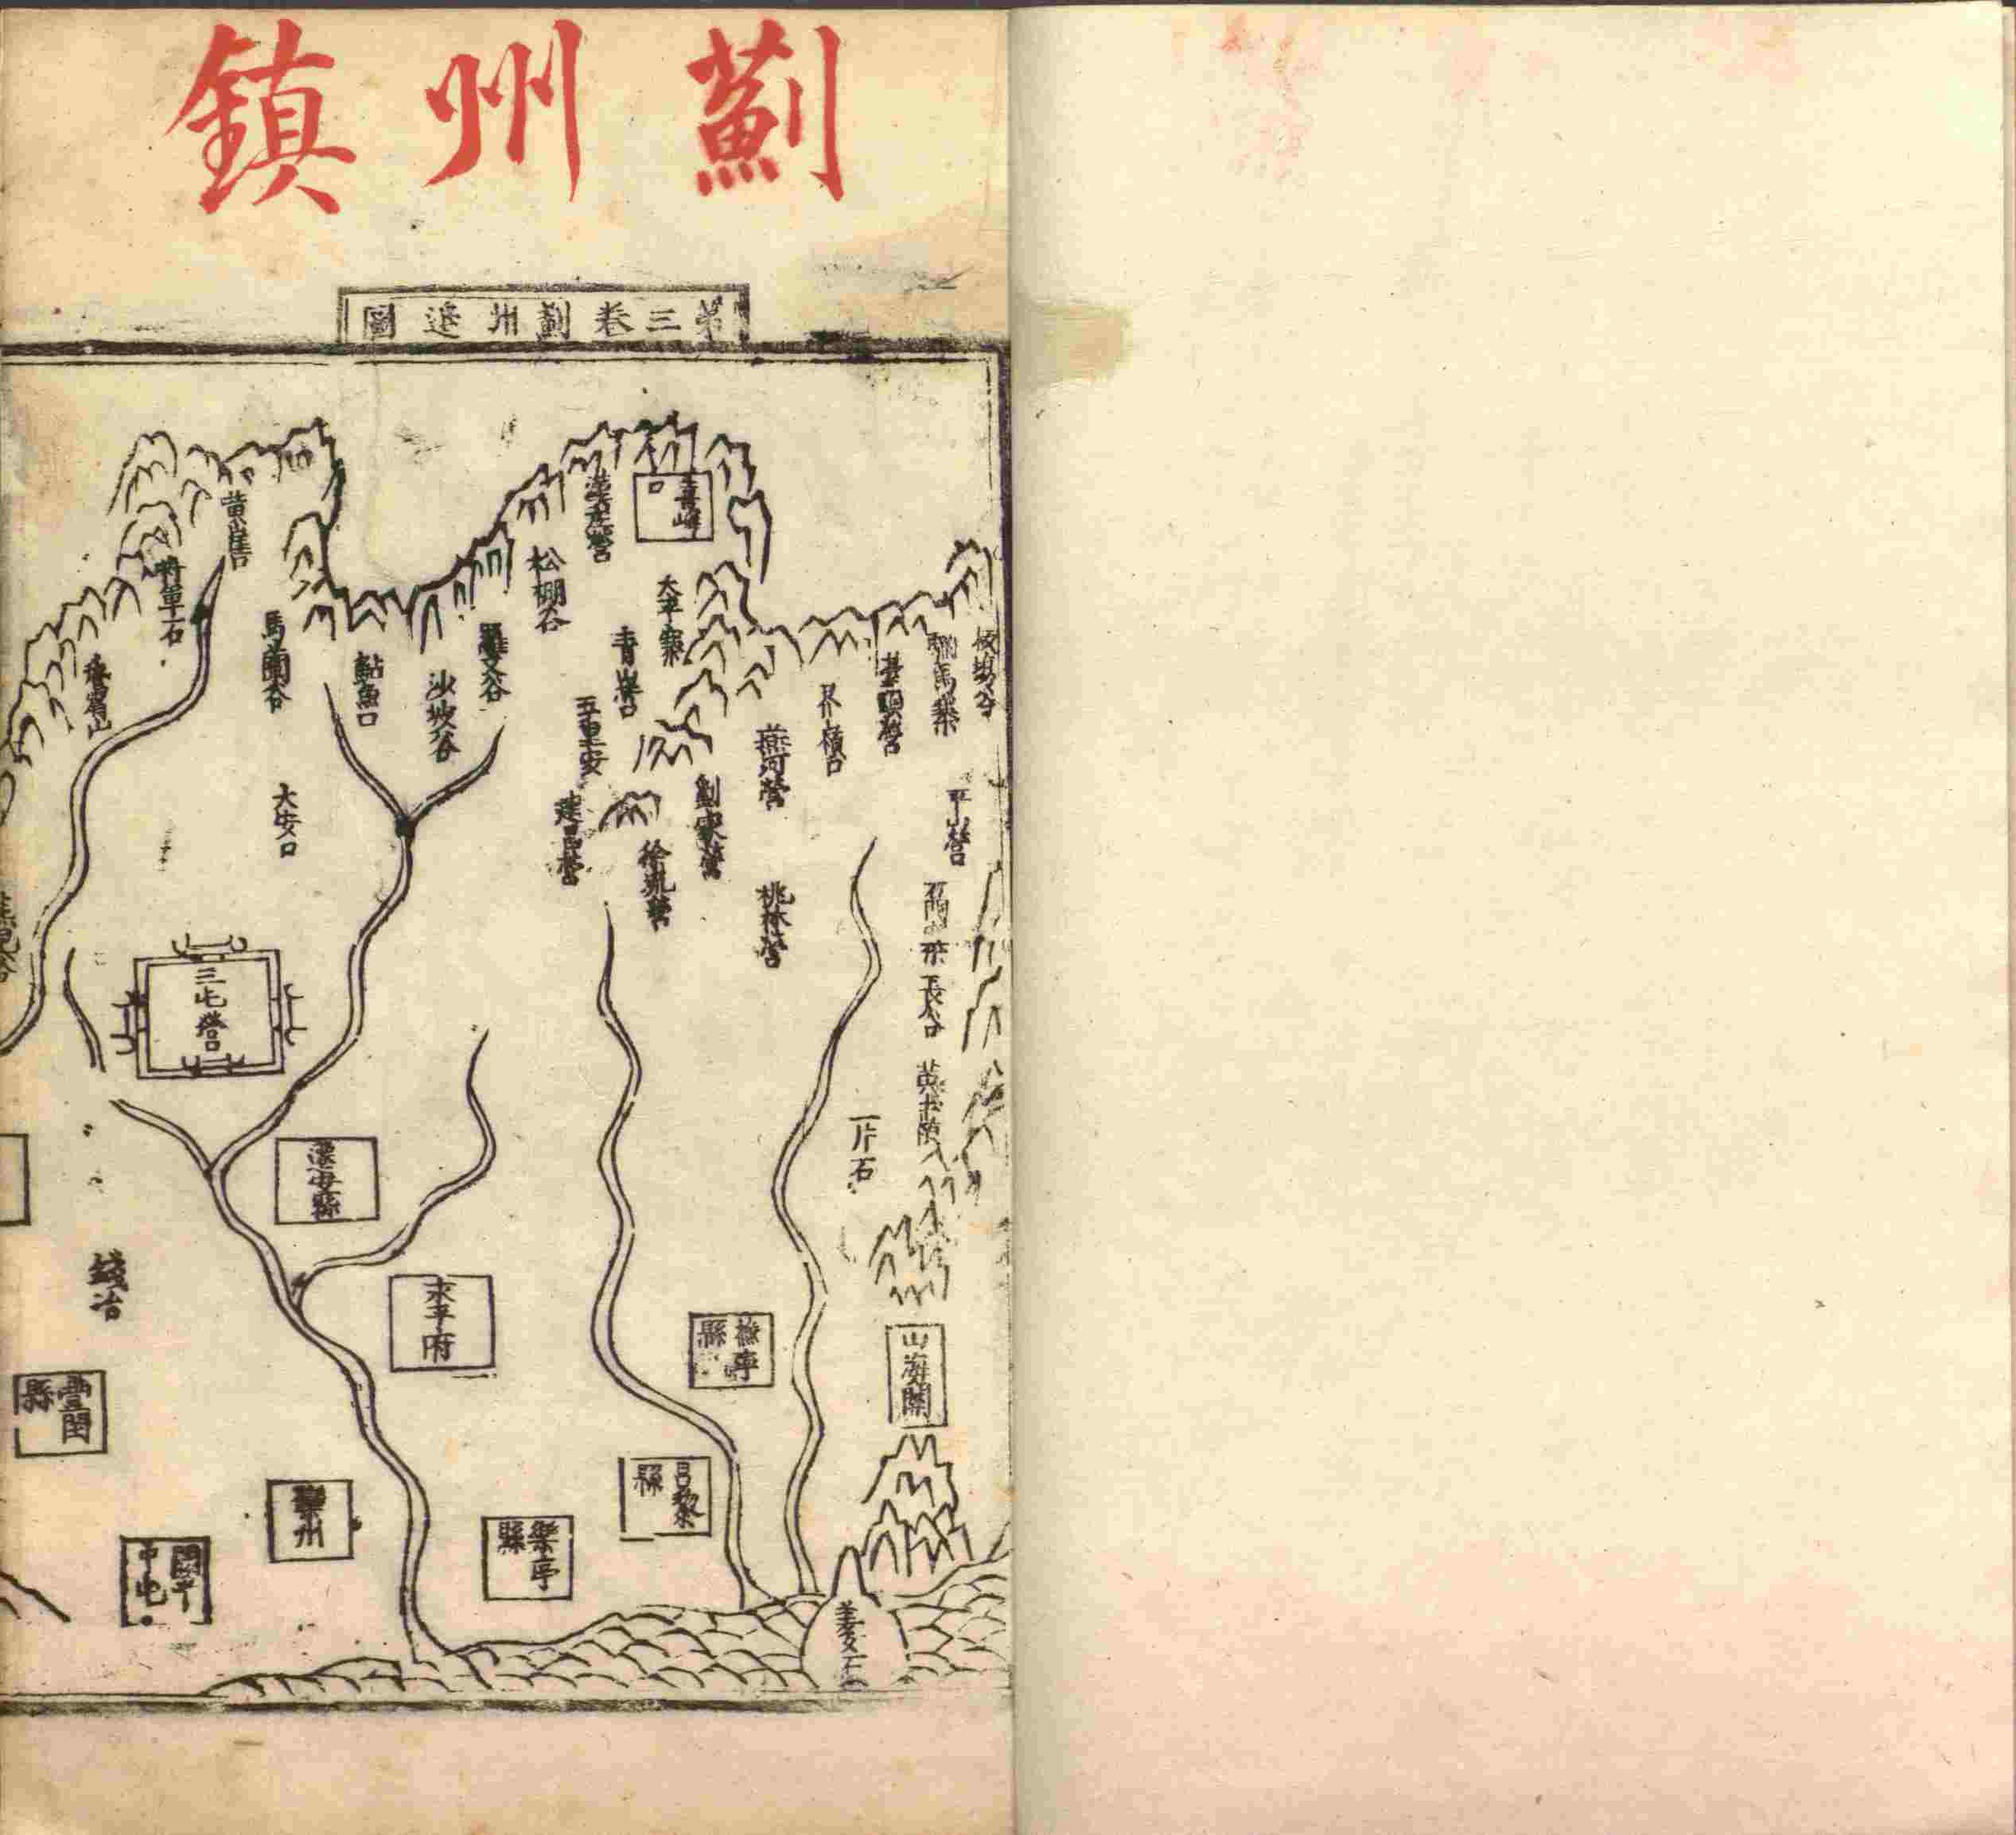 薊州鎮
第三卷薊州邊圖
板塲谷
駙馬寨
平山營
長谷口
黃土嶺
一片石
山海關
姜女石
義院口
界嶺口
燕河營
桃林營
撫寧縣
昌黎縣
喜峰口
太平寨
青山口
五重安
劉家營
徐流營
建昌營
漢兒庄營
松棚谷
羅文谷
沙坡谷
鮎魚口
馬蘭谷
大安口
黃崖口
將軍石
三屯營
遷安縣
永平府
樂亭縣
灤州
開平中屯
豐閏縣